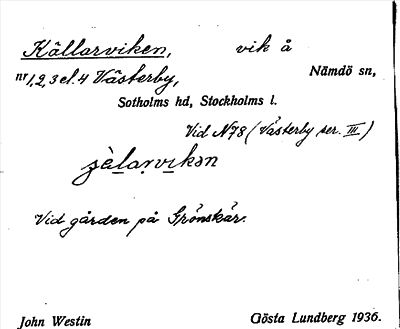 Källarviken, vik å
nr 1, 2, 3 el. 4 Västerby, Nämdö sn,
Sotholms hd, Stockholms l.
Vid N78 (Västerby ser. III)
Vid gården på Grönskär.
John Westin Gösta Lundberg 1936.